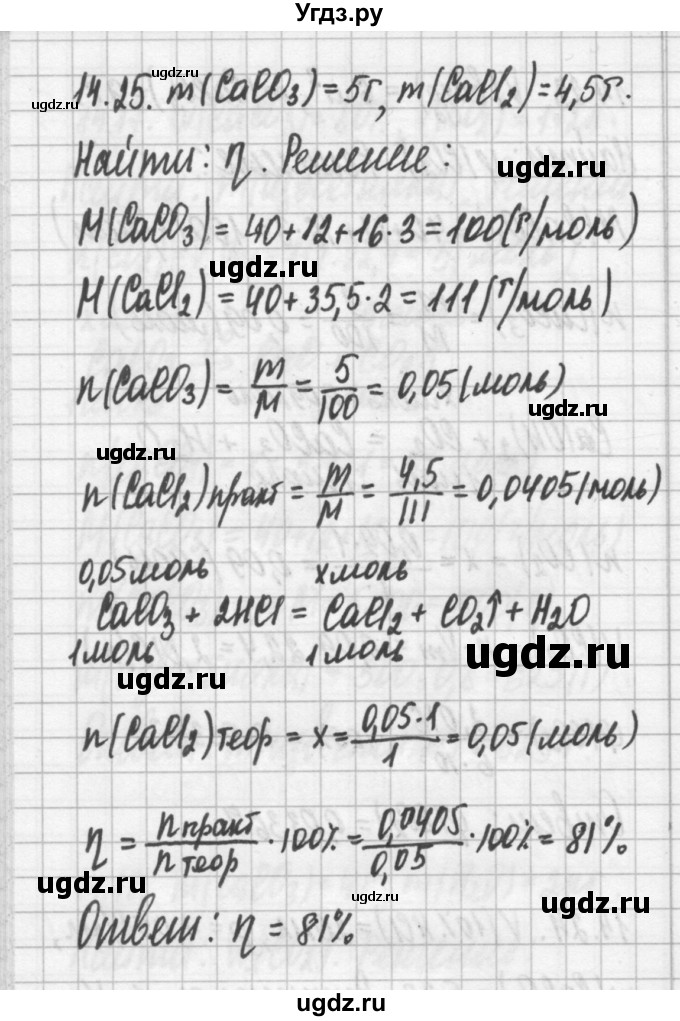 Угдз.ру
14.25. m(CaCO₃)=5г, m(CaCl₂)=4,5г.
ugdz.ru ugdz.ru
Найти: η. Решение:
ugdz.ru
M(CaCO₃)=40+12+16·3=100(г/моль)
ugdz.ru
M(CaCl₂)=40+35,5·2=111(г/моль)
n(CaCO₃)=m/M=5/100=0,05(моль)
ugdz.ru
ugdz.ru
n(CaCl₂)практ=m/M=4,5/111=0,0405(моль)
0,05моль xмоль
CaCO₃+2HCl=CaCl₂+CO₂↑+H₂O
1моль 1моль
ugdz.ru
ugdz.ru
n(CaCl₂)теор=x=0,05·1/1=0,05(моль)
η=nпракт/nтеор·100%=0,0405/0,05·100%=81%
ugdz.ru
ugdz.ru
Ответ: η=81%
ugdz.ru